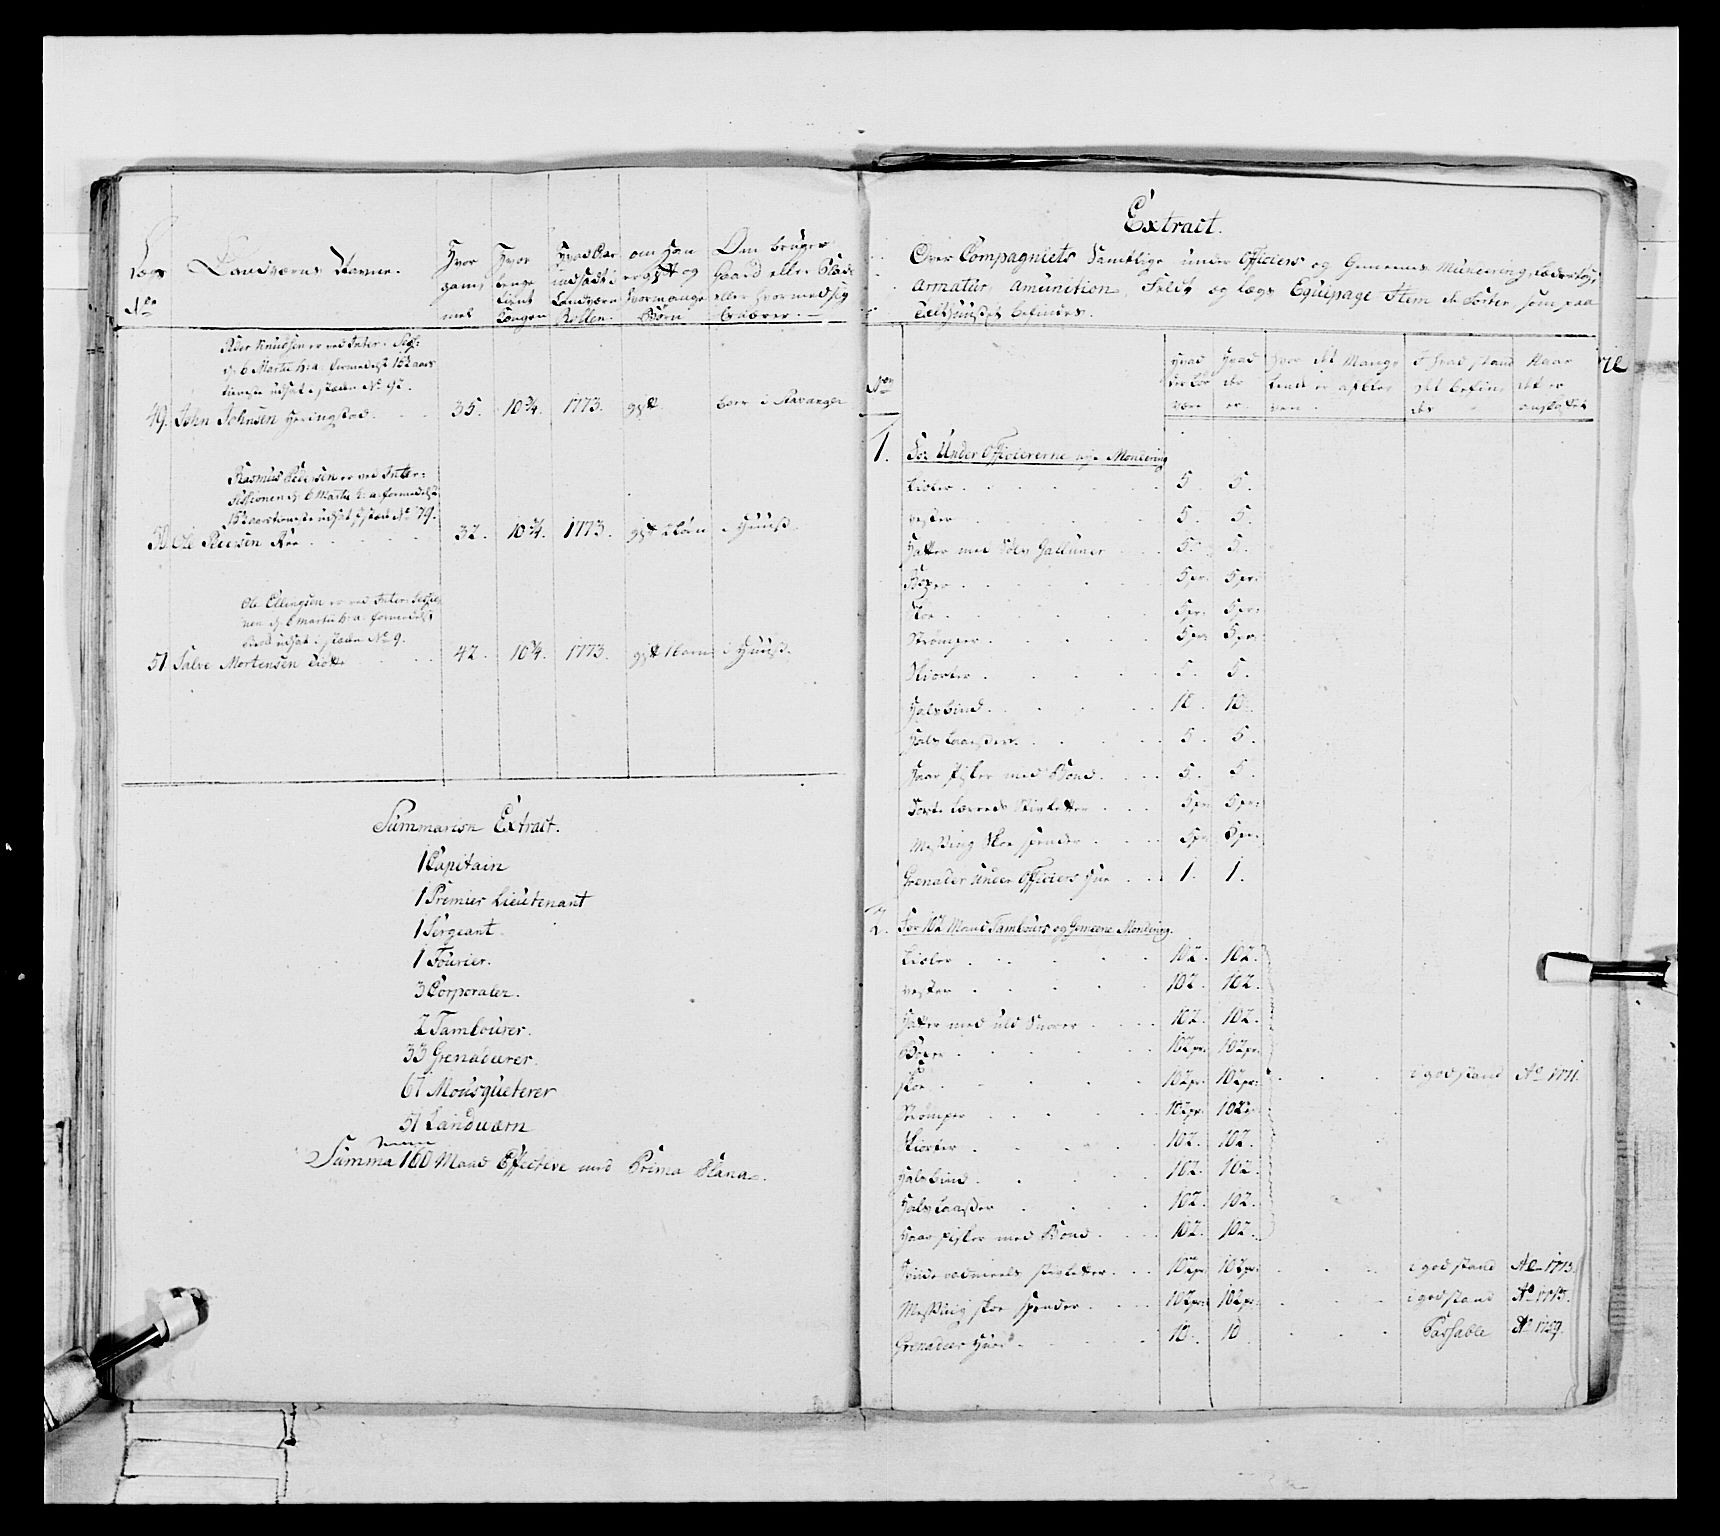 Landværns Navne.
No
Hvor gam̄el
Hvor længe tient Kongen
Hvad Aar indsadt i Landværn Rollen.
om Han er gift og hvor mange Børn
Om bruger Gaard eller Plads eller hvormed sig Ernærer.
Peder Knudsen er ved Inter: Sess:
d: 6 Martii h: a:
tieneste udsat i stæden No 92.
49. John Johnsen Heringstad. 35. 10¾. 1773. gift. boer i Stavanger
Rasmus Pedersen er ved Inter:
Sessionen d: 6 Martii h: a: formedelst
udsat i stæden No 79.
50 Ole Peersen Aae 32. 10¾. 1773. gift 2 børn i Huus.
Ole Ellingsen er ved Inter: Sessio
nen d: 6 Martii h: a: formedelst
udsat i stæden No 9.
51 Salve Mortensen 42. 10¾. 1773. gift 1 barn i Huus.
Summarisk Extract.
1 Capitain
1 Premier Lieutenant
1 Sergeant
1 Fourier.
3 Corporaler.
2 Tambourer.
33 Grenaderer.
67 Mousqueterer
51 Landværn
Summa 160 Mand Effective med Prima Plana.
Extract.
Over Compagniets Samtlige under Officiers og Gemeenes Mundering, Lædertøy,
Armatur, Amunition, Feldt og Lægs Equipage Item de Sorter som paa
befindes.
No
Hvad der bør være
Hvad der er.
Hvor det Manglende er afbleven.
I hvad stand det befindes
Naar det er anskaffet
1. For Under Officiererne nye Mondering
Kioler 5. 5.
vester 5. 5.
Hatter med Sølv Galluner 5. 5.
Buxer 5 pr: 5 pr:
Skoe 5 pr: 5 pr:
Strømper 5 pr: 5 pr:
Skiorter 5. 5.
Halsbind 10. 10.
Hals Laasser 5. 5.
Haar pisker med Bond 5. 5.
Sorte Lærreds Stivletter 5 pr: 5 pr:
Messing Skoe spender 5 pr: 5 pr:
Grenader Under Officiers Hue 1. 1.
2. For 102 Mand Tambours og Gemeene Mondering.
Kioler 102. 102.
vester 102. 102.
Hatter med uld Snorer 102. 102.
Buxer 102 pr: 102 pr:
Skoe 102 pr: 102 pr: i god stand Ao 1771.
Strømper 102 pr: 102 pr:
Skiorter 102. 102.
Halsbind 102. 102.
Hals Laasser 102. 102.
Haar pisker med Bond 102. 102.
vadmels stivletter 102 pr: 102 pr: i god stand Ao 1773.
Messing skoe spender 102 pr: 102 pr: i god stand Ao 1773.
Grenadeer Huer 10. 10 Passable Ao 1759.